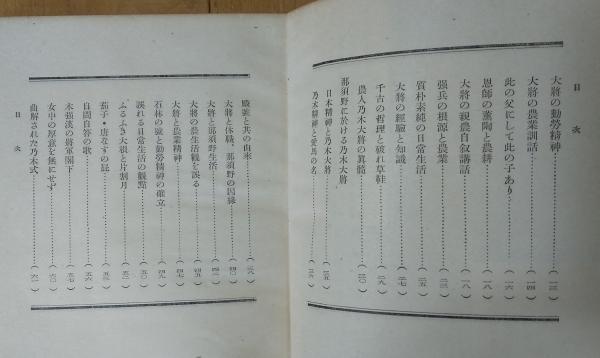 目次
大將の勤勞精神………(一三)
大將の農業訓話………(一四)
此の父にして此の子あり………(一六)
恩師の薫陶と農耕………(一八)
大將の親農自叙講話………(一八)
强兵の根源と農業………(二三)
質朴素純の日常生活………(二五)
大將の經驗と知識………(二七)
千古の哲理と破れ草鞋………(二九)
農人乃木大將の眞髓………(三〇)
那須野に於ける乃木大將
日本精神と乃木大將
乃木精神と愛馬の名………
號と其の由來………(三八)
大將と休職、那須野の因緣………(四〇)
大將と那須野生活………(四一)
大將の農生活觀を誤る………(四五)
大將と農業精神………(四七)
石林の號と勤勞精神の確立………(四九)
誤れる日常生活の觀點………(五〇)
ふるふき大根と片割月………(五一)
茄子・唐なすの話………(五三)
自問自答の歌………(五六)
木强漢の將軍閣下………(五七)
女中の厚意を無にせず………(六〇)
曲解された乃木式………(六一)
目次